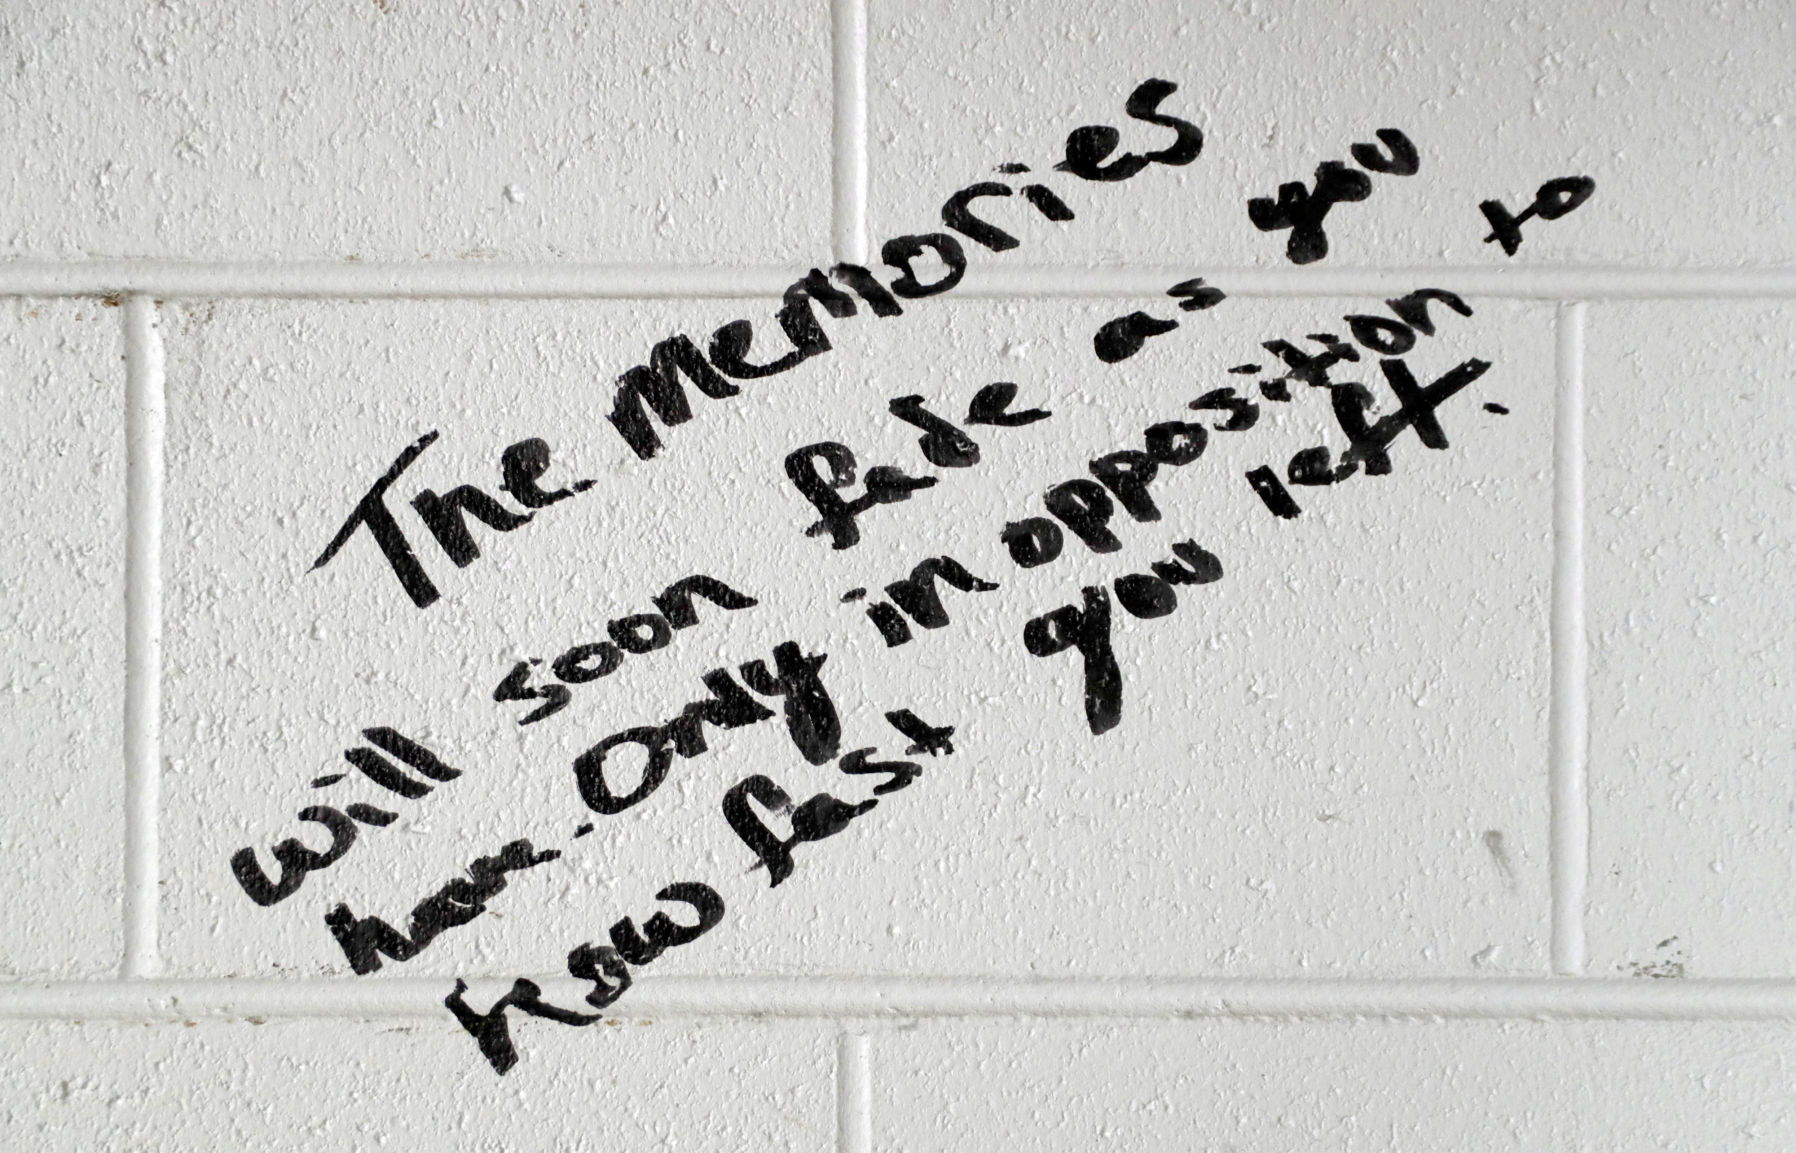 The memories
will soon fade as you
have. Only in opposition to
how fast you left.